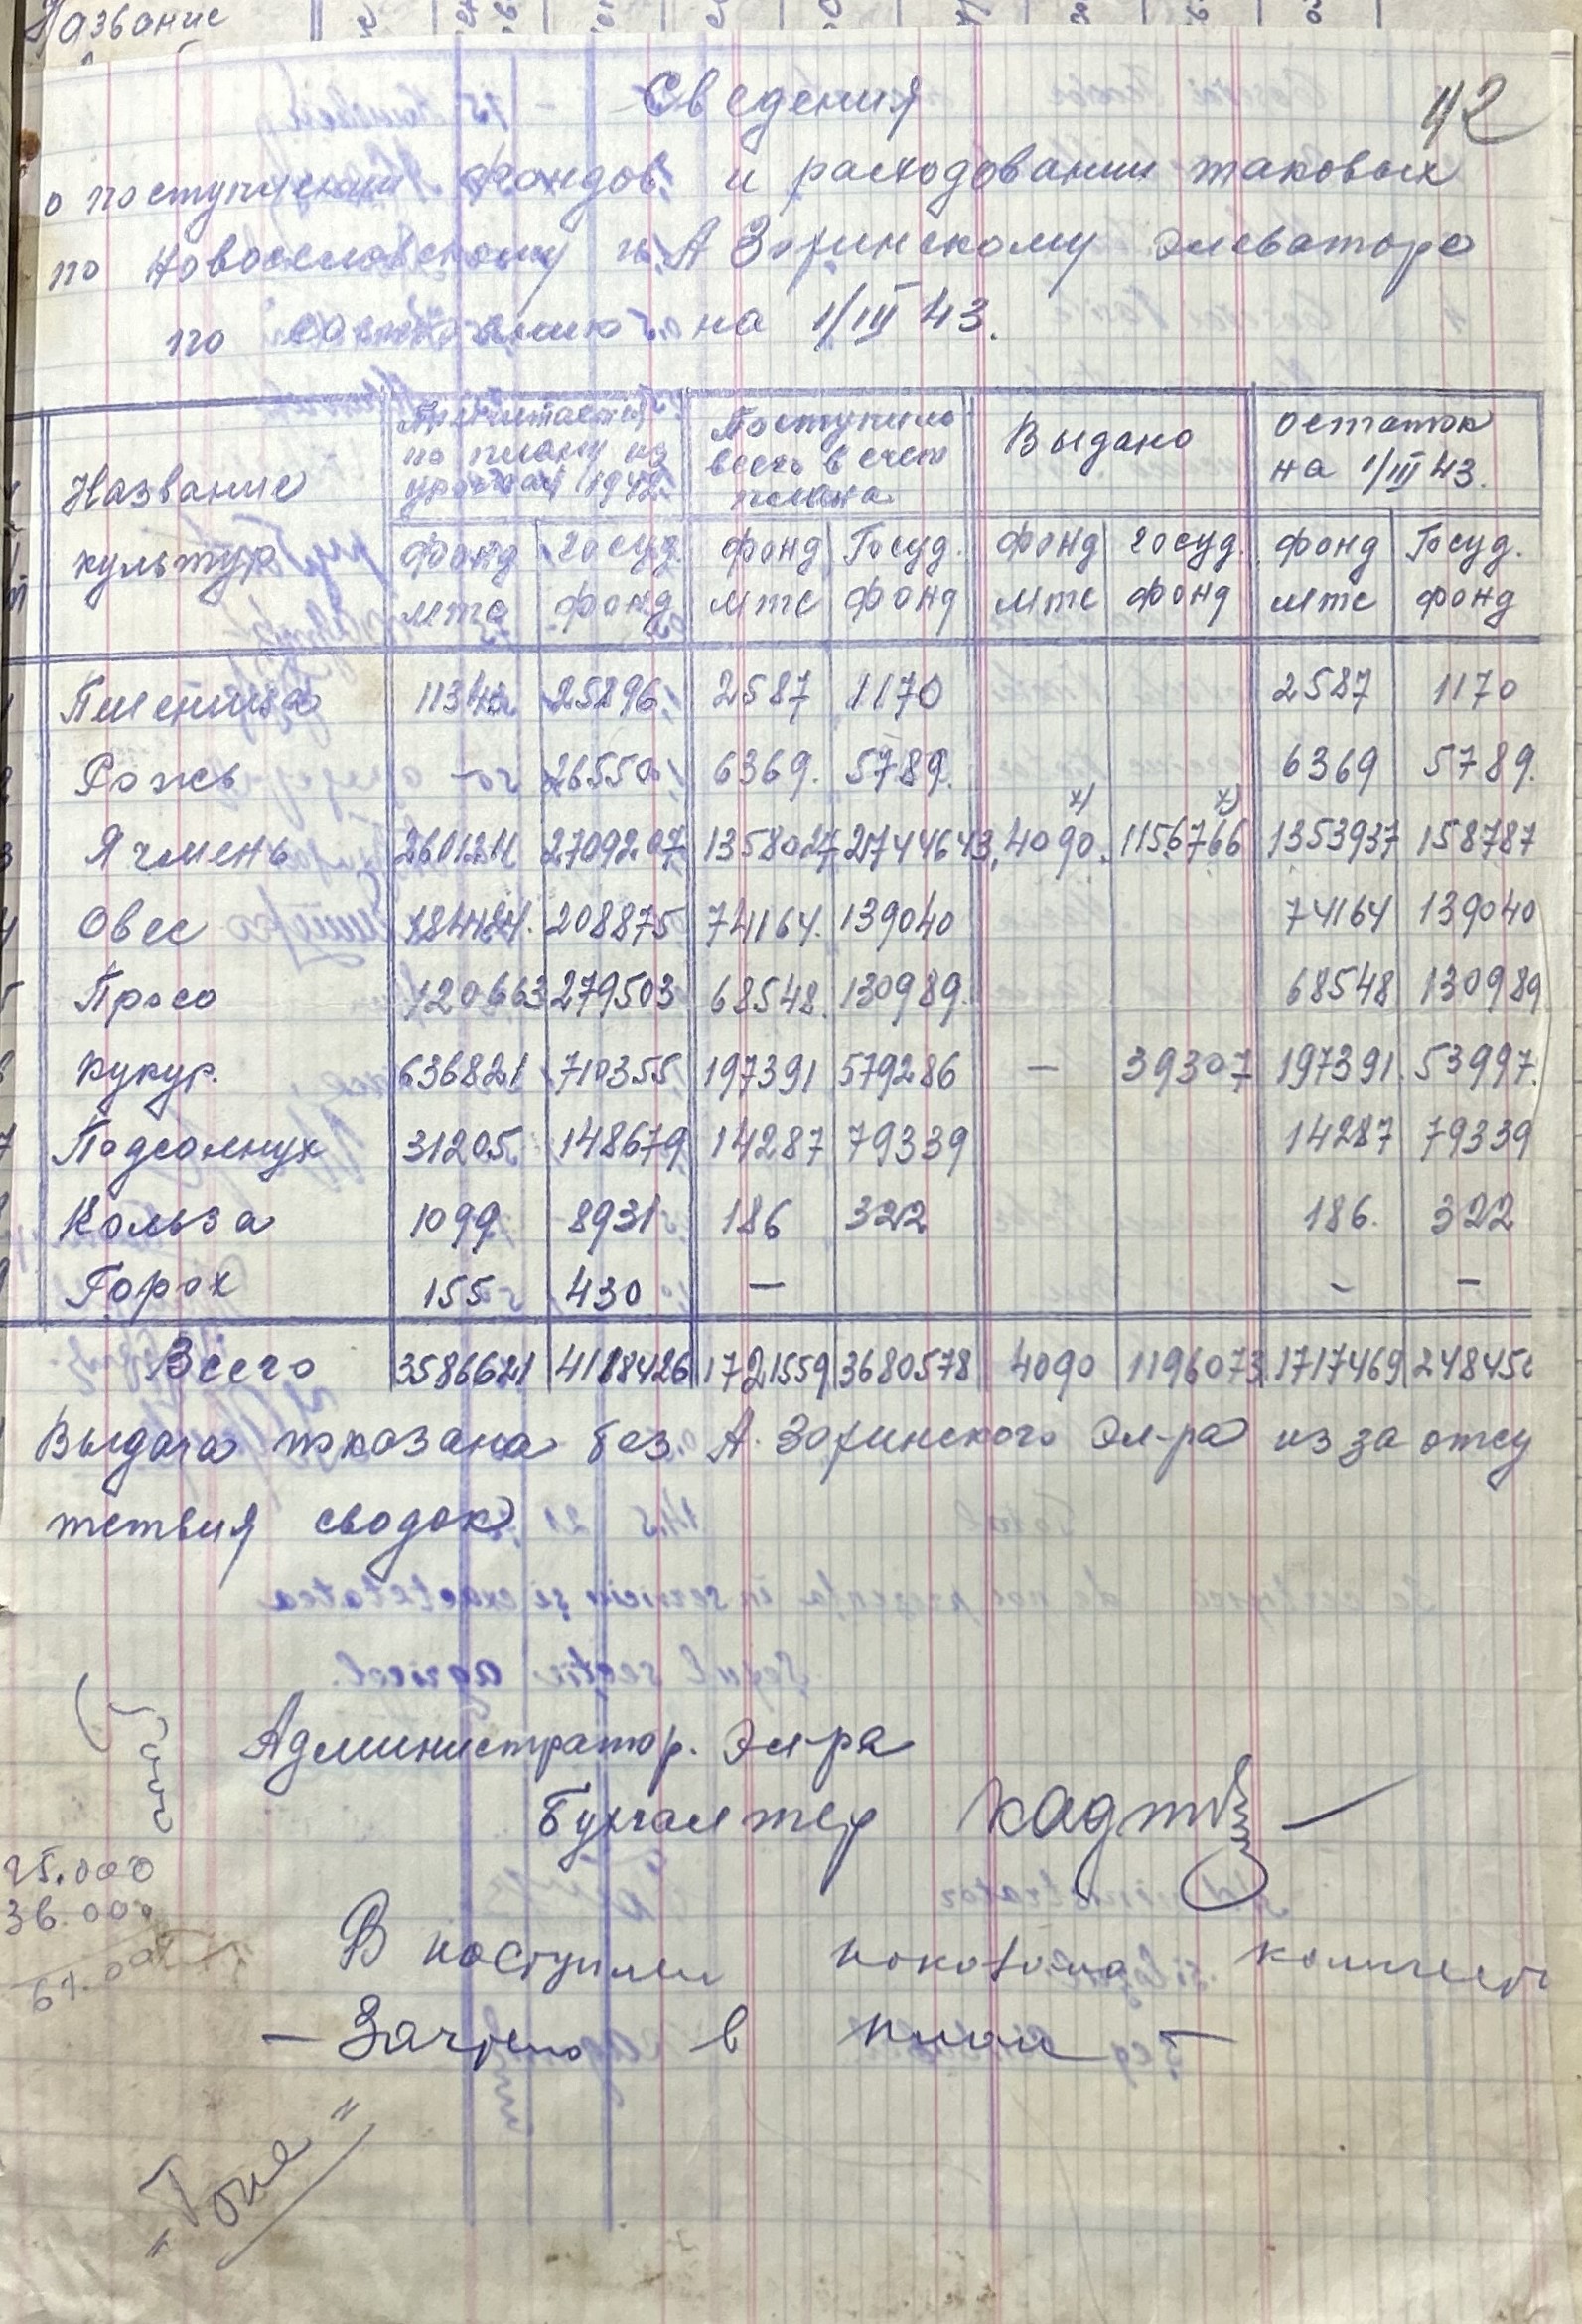 Название
42
Сведения
о поступлении фондов и расходовании таковых
по Новоселовскому и А Зоринскому Элеватору
по состоянию на 1/III 43.
Название культур | Причитается по плану из урожая 1942 | Поступило всего в счет плана | Выдано | Остаток на 1/III 43.
Фонд мтс | Госуд. фонд | Фонд мтс | Госуд. фонд | Фонд мтс | Госуд. фонд | Фонд мтс | Госуд. фонд
Пшеница | 11342 | 25896 | 2587 | 1170 | | | 2587 | 1170
Рожь | — | 26550 | 6369. | 5789. | | | 6369 | 5789.
х) х)
Ячмень | 2601211 | 2709207 | 1358027 | 2744643 | 4090. | 1156766 | 1353937 | 158787
Овес | 184484. | 208875 | 74164. | 139040 | | | 74164 | 139040
Просо | 120663 | 279503 | 68548. | 130989. | | | 68548 | 130989
Кукур. | 636821 | 710355 | 197391 | 579286 | — | 39307 | 197391. | 53997.
Подсолнух | 31205 | 148679 | 14287 | 79339 | | | 14287 | 79339
Кольза | 1099 | 8931 | 186 | 322 | | | 186. | 322
Горох | 155 | 430 | — | | | | – | –
Всего | 3586621 | 4118426 | 1721559 | 3680578 | 4090 | 1196073 | 1717469 | 248450
Выдача показана без А. Зоринского Эл-ра из за отсу
тствия сводок
Администратор. Эл-ра
Бухгалтер
25.000
36.000
61.000
В поступлен показана количеств
— Зачтено в план —